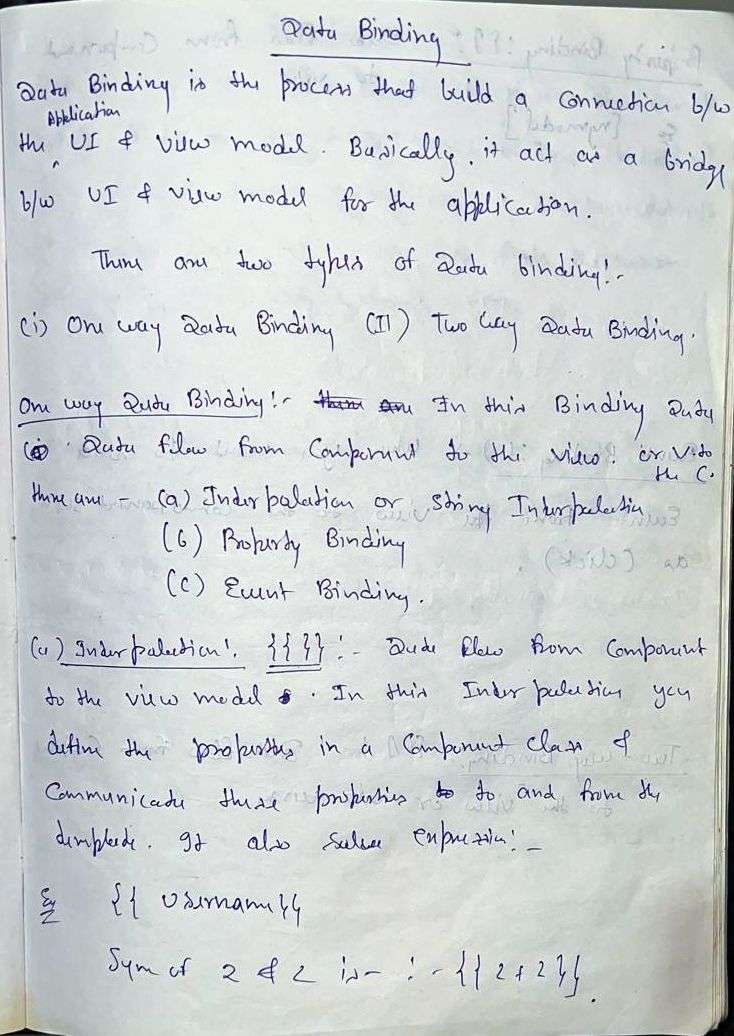 Data Binding
Data Binding is the process that build a connection b/w
Application
the UI & view model. Basically, it act as a bridge
b/w UI & view model for the application.
There are two types of Data binding:-
(i) One way Data Binding (II) Two way Data Binding.
One way Data Binding:- In this Binding Data
Data flow from Component to the view. or V. to
the C.
there are - (a) Interpolation or string Interpolation
(b) Property Binding
(c) Event Binding.
(a) Interpolation:. {{ }} :- Data flow from Component
to the view model. In this Interpolation you
define the properties in a Component class &
Communicate these properties to and from the
template. It also solve expression:-
Eg {{ username }}
Sum of 2 & 2 is - :- {{ 2+2 }}.